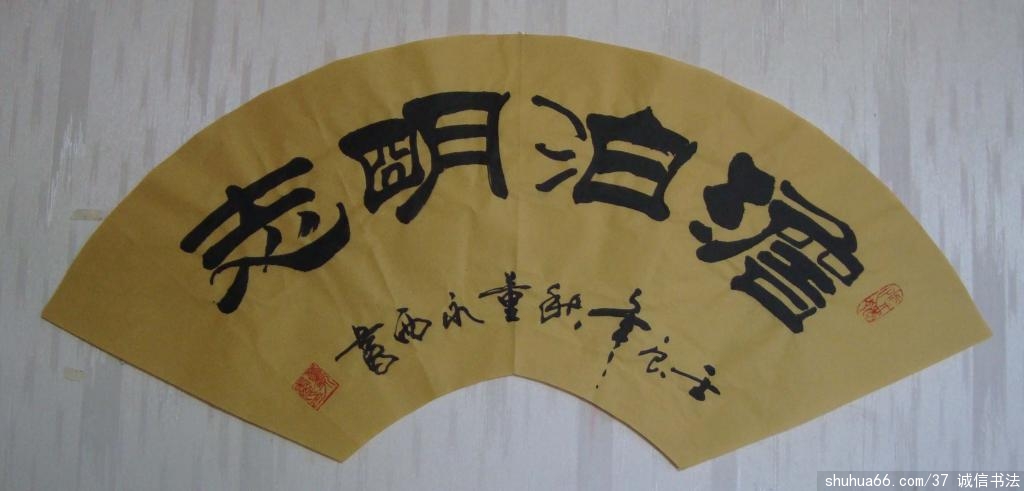 澹泊明志
壬辰年秋董永西書
shuhua66.com/37 诚信书法